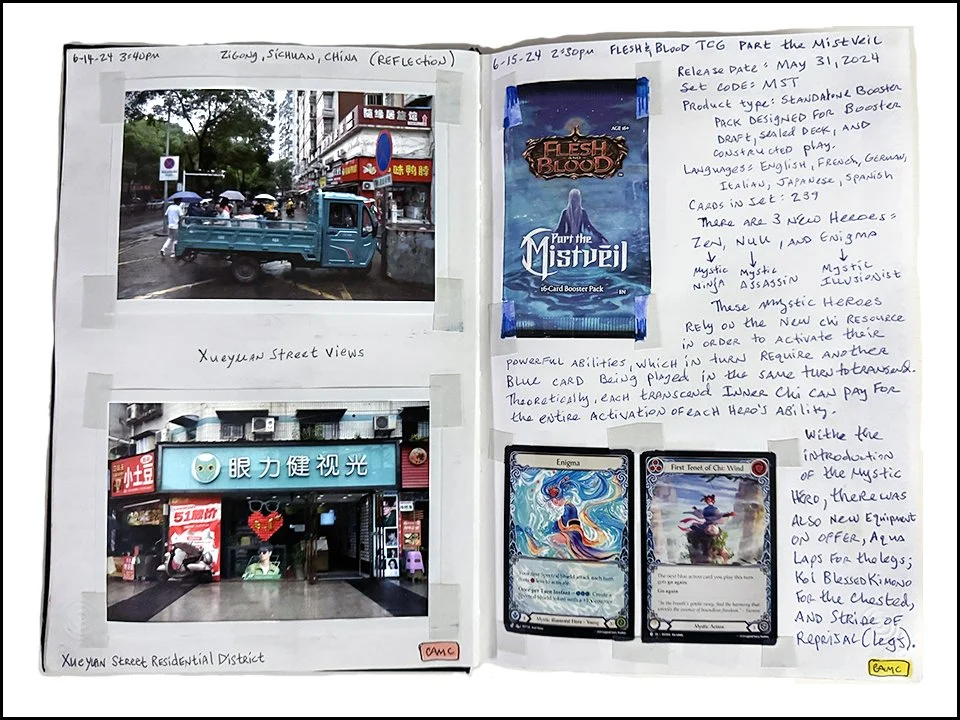 6-14-24 3:40pm ZIGONG, SICHUAN, CHINA (REFLECTION)
随缘居旅馆
味鸭脖
XUEYUAN STREET VIEWS
小土豆
眼力健视光
51
XUEYUAN STREET RESIDENTIAL DISTRICT
BAMC
6-15-24 2:30pm FLESH & BLOOD TCG PART the MISTVEIL
RELEASE DATE: MAY 31, 2024
SET CODE: MST
PRODUCT type: STANDALONE BOOSTER
PACK DESIGNED FOR BOOSTER
DRAFT, SEALED DECK, AND
CONSTRUCTED PLAY.
LANGUAGES: ENGLISH, FRENCH, GERMAN,
ITALIAN, JAPANESE, SPANISH
CARDS IN SET: 239
THERE ARE 3 NEW HEROES:
ZEN, NUU, AND ENIGMA
MYSTIC NINJA MYSTIC ASSASSIN MYSTIC ILLUSIONIST
THESE MYSTIC HEROES
RELY ON THE NEW CHI RESOURCE
IN ORDER TO ACTIVATE THEIR
POWERFUL ABILITIES, WHICH IN TURN REQUIRE ANOTHER
BLUE CARD BEING PLAYED IN THE SAME TURN to transend.
Theoretically, EACH TRANSCEND INNER CHI CAN PAY FOR
the ENTIRE ACTIVATION OF EACH HERO'S ABILITY.
AGE 16+
FLESH
AND
BLOOD
Part the
Mistveil
16-Card Booster Pack
EN
Enigma
Once per Turn Instant
Mystic Illusionist Hero - Young
First Tenet of Chi: Wind
The next blue action card you play this turn
gets go again.
Go again
Mystic Action
Withe the
INTRODUCTION
OF THE MYSTIC
HERO, there WAS
ALSO NEW EQUIPMENT
ON OFFER, AQUA
LAPS FOR the LEGS;
KOI BLESSED KIMONO
FOR the CHESTED,
AND STRIDE OF
REPRISAL (LEGS).
BAMC